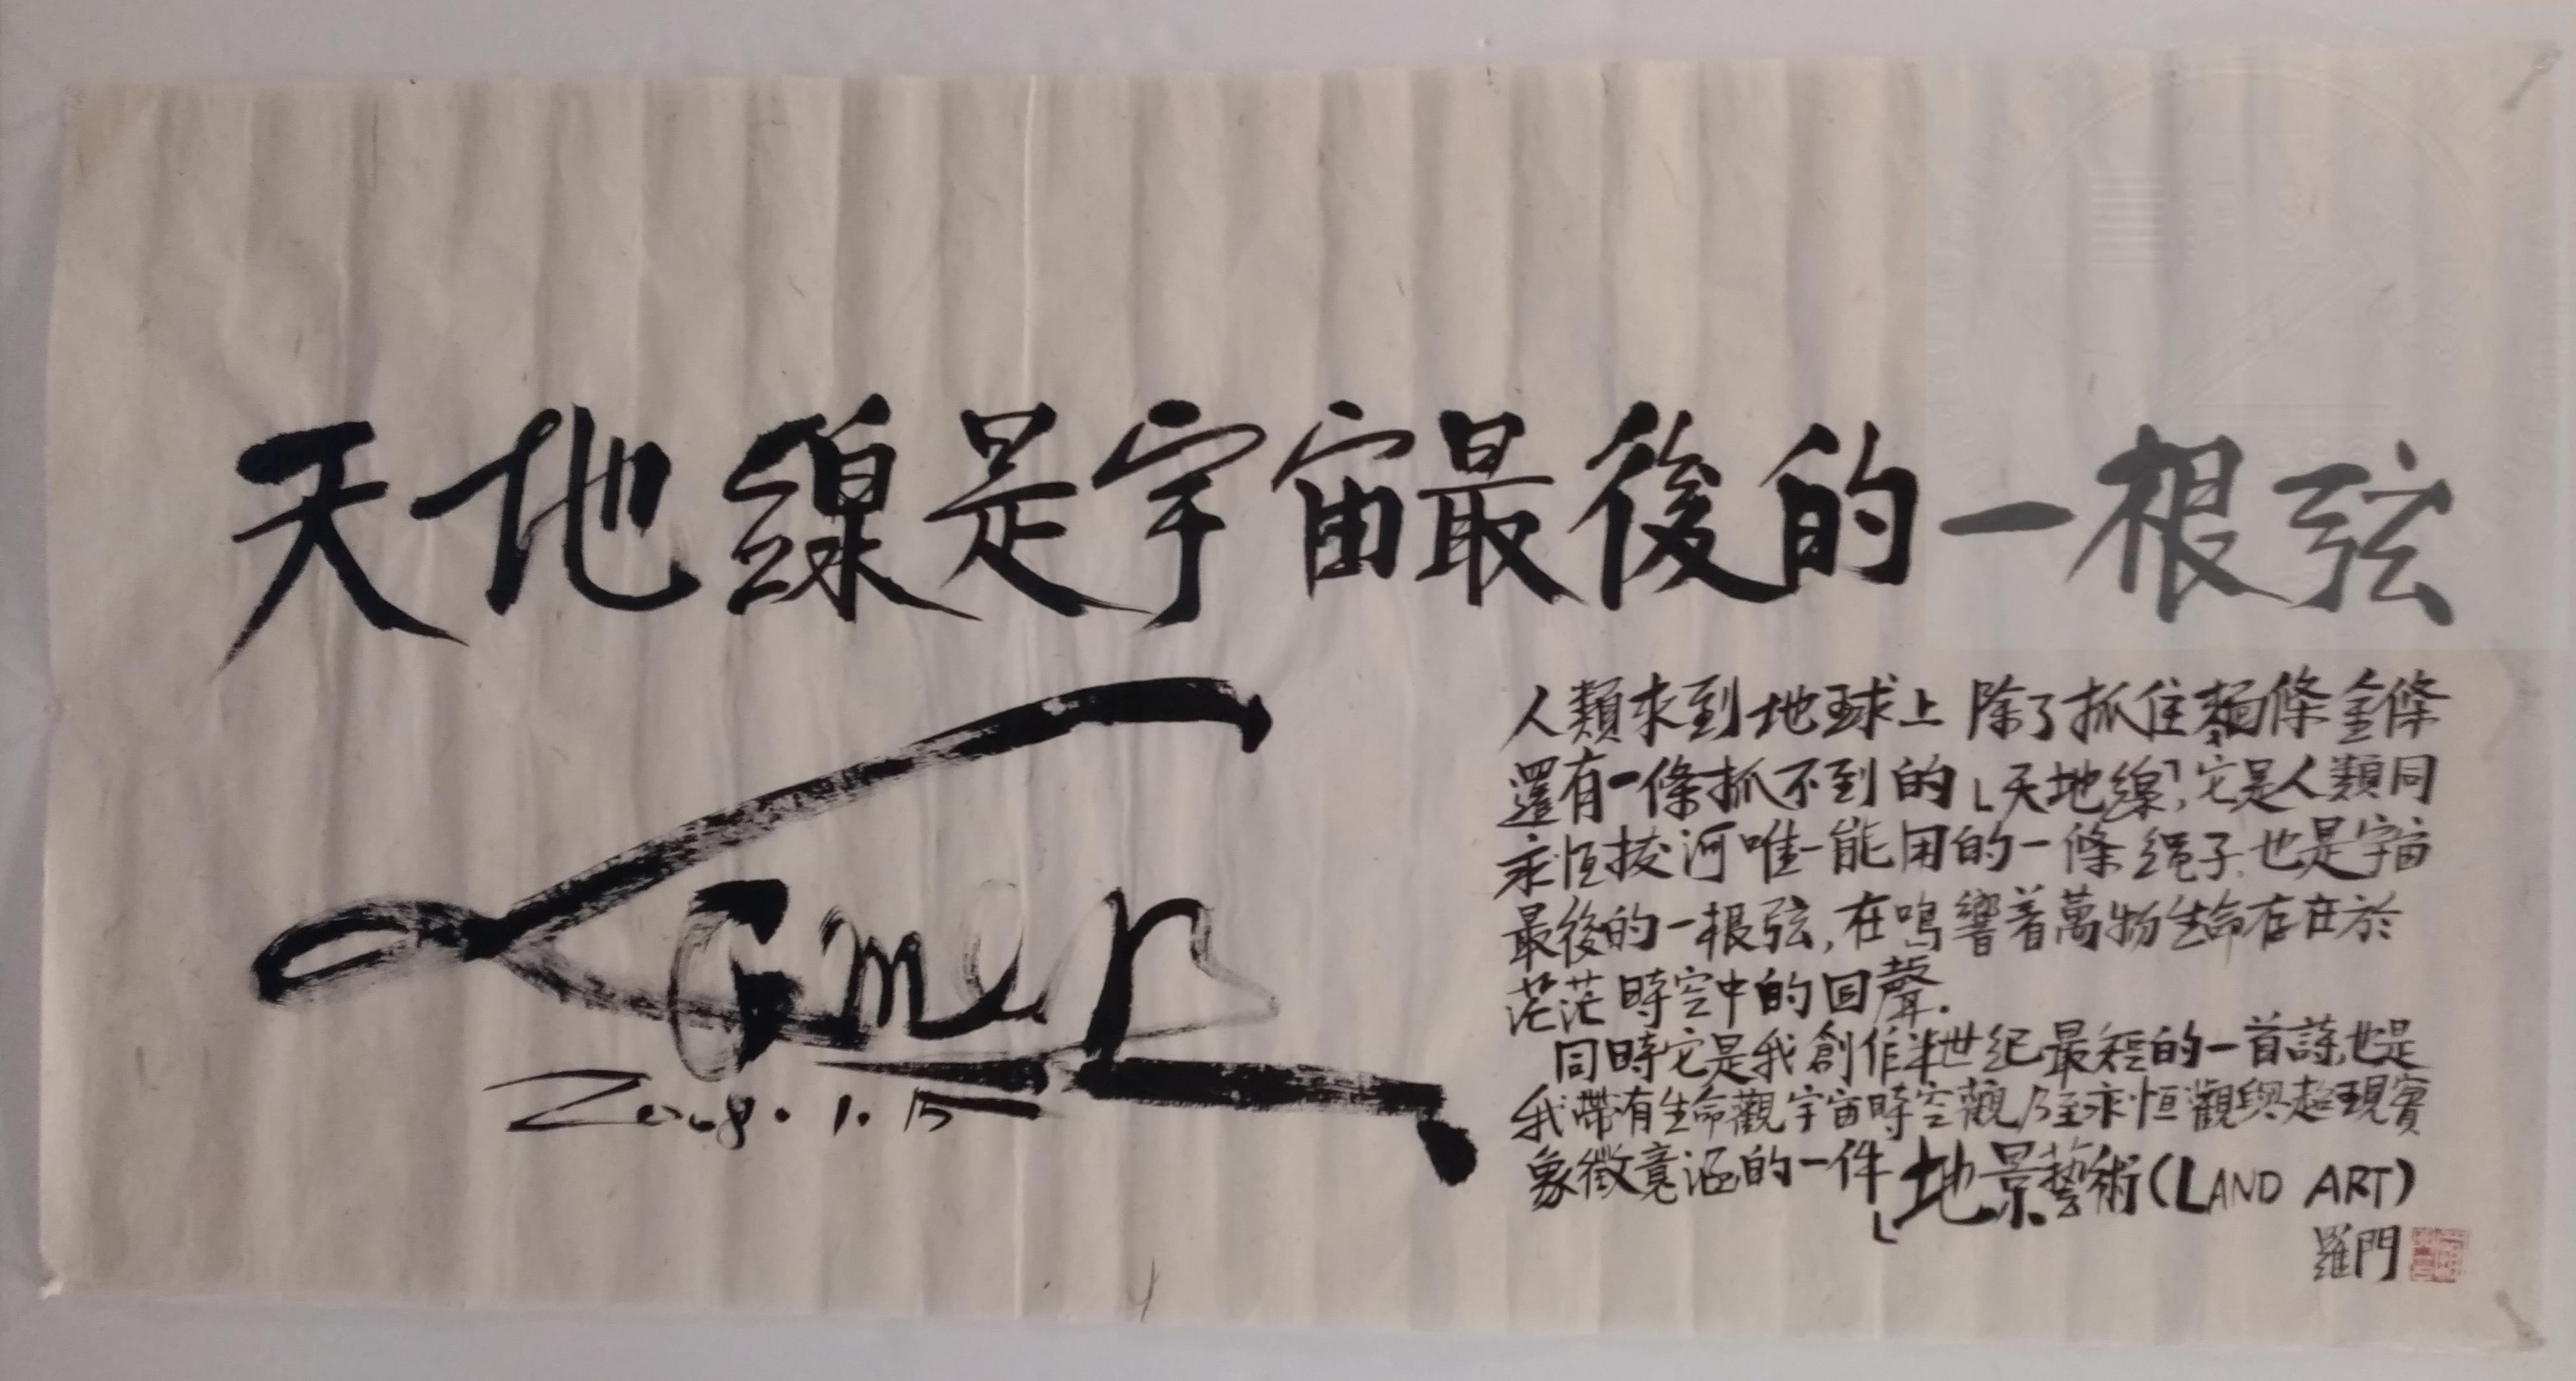 天地線是宇宙最後的一根弦
人類來到地球上 除了抓住麵條金條
還有一條抓不到的「天地線」,它是人類同
永恒拔河唯一能用的一條繩子.也是宇宙
最後的一根弦,在鳴響著萬物生命存在於
茫茫時空中的回聲.
同時它是我創作半世紀最短的一首詩,也是
我帶有生命觀宇宙時空觀乃至永恒觀與超現實
象徵意涵的一件「地景藝術(LAND ART)
羅門
2008.1.15